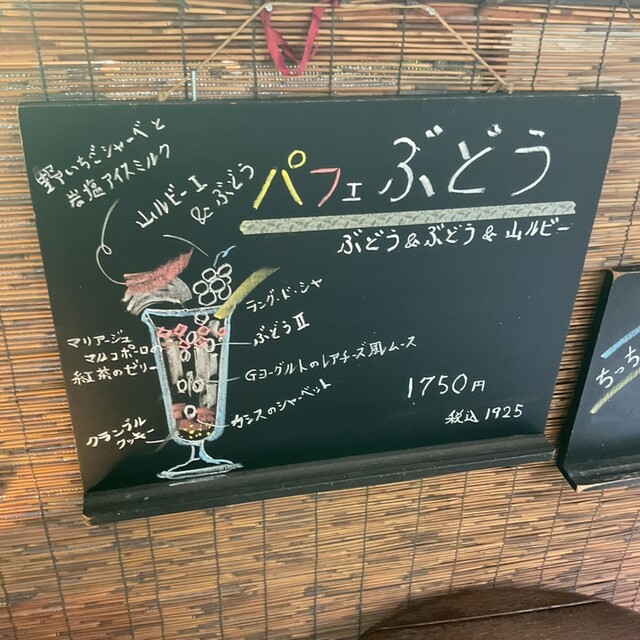 パフェ ぶどう
ぶどう&ぶどう&山ルビー
野いちごシャーベと
岩塩アイスミルク
山ルビーI
&ぶどう
ラング・ド・シャ
ぶどうII
マリアージュ
マルコポーロの
紅茶のゼリー
Gヨーグルトのレアチーズ風ムース
カシスのシャーベット
クランブル
クッキー
1750円
税込1925
ちっち